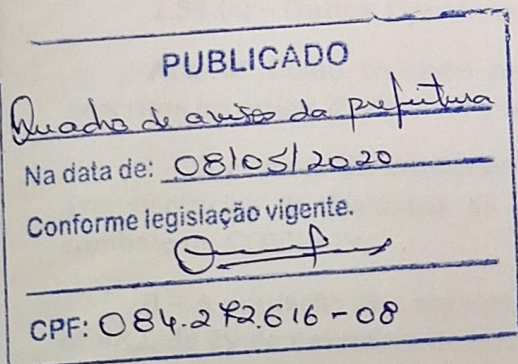 PUBLICADO
Quadro de avisos da prefeitura
Na data de: 08/05/2020
Conforme legislação vigente.
CPF: 084.272.616-08